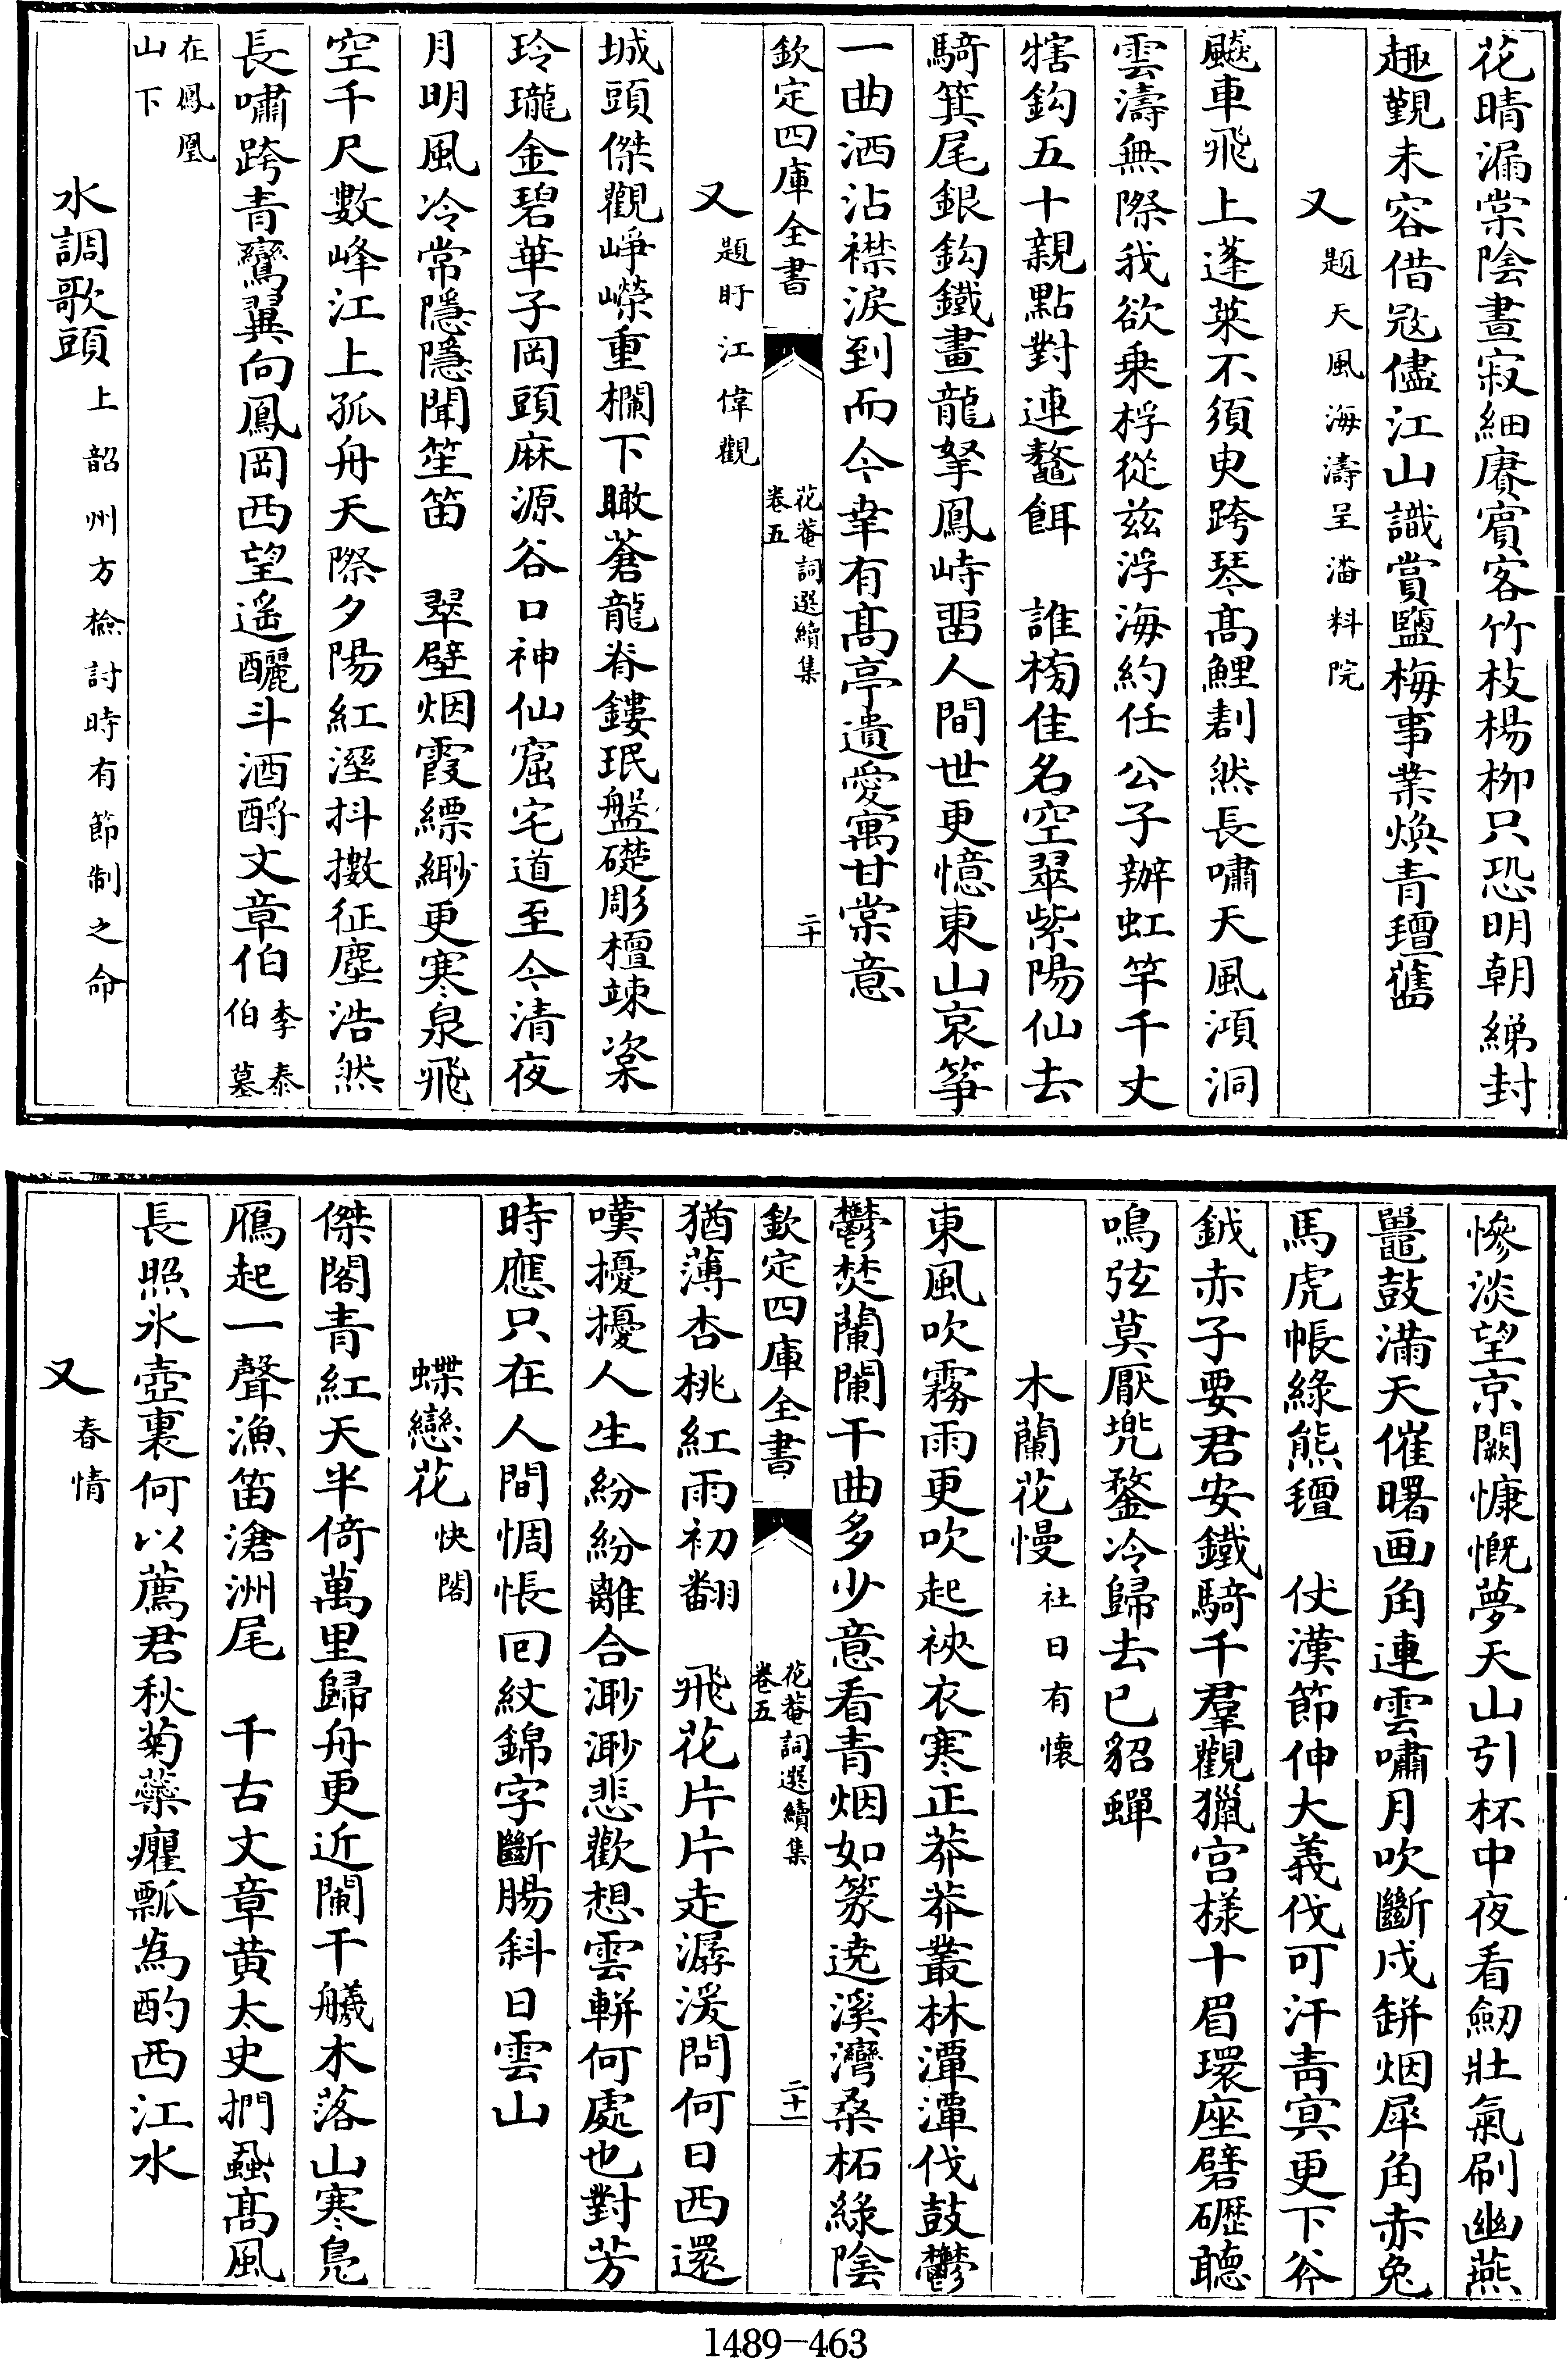 花晴漏棠陰晝寂細賡賓客竹枝楊柳只恐明朝綈封
趣覲未容借冦儘江山識賞鹽梅事業煥青氊舊
又題天風海濤呈潘料院
飇車飛上蓬萊不須更跨琴髙鯉劃然長嘯天風澒洞
雲濤無際我欲乗桴從兹浮海約任公子辦虹竿千丈
犗鈎五十親點對連鼇餌　誰榜佳名空翠紫陽仙去
騎箕尾銀鈎鐵畫龍拏鳳峙留人間世更憶東山哀箏
一曲洒沾襟淚到而今幸有髙亭遺愛寓甘棠意
欽定四庫全書
花菴詞選續集
卷五
二十
又題盱江偉觀
城頭傑觀崢嶸重欄下瞰蒼龍脊鏤珉盤礎彫檀竦桀
玲瓏金碧華子岡頭麻源谷口神仙窟宅道至今清夜
月明風冷常隱隱聞笙笛　翠壁烟霞縹緲更寒泉飛
空千尺數峰江上孤舟天際夕陽紅溼抖擻征塵浩然
長嘯跨青鸞翼向鳳岡西望遥釃斗酒酹文章伯李泰
伯墓
在鳳凰
山下
水調歌頭上韶州方檢討時有節制之命
慘淡望京闕慷慨夢天山引杯中夜看劒壯氣刷幽燕
鼉鼓滿天催曙画角連雲嘯月吹斷戍缾烟犀角赤兔
馬虎帳綠熊氊　仗漢節伸大義伐可汗青冥更下斧
鉞赤子要君安鐵騎千羣觀獵宫様十眉環座礕礰聽
鳴弦莫厭兜鍪冷歸去已貂蟬
木蘭花慢社日有懷
東風吹霧雨更吹起裌衣寒正莽莽叢林潭潭伐鼓鬱
鬱焚蘭闌干曲多少意看青烟如篆遶溪灣桑柘綠陰
欽定四庫全書
花菴詞選續集
卷五
二十一
猶薄杏桃紅雨初翻　飛花片片走潺湲問何日西還
嘆擾擾人生紛紛離合渺渺悲歡想雲軿何處也對芳
時應只在人間惆悵回紋錦字斷腸斜日雲山
蝶戀花快閣
傑閣青紅天半倚萬里歸舟更近闌干艤木落山寒鳬
鴈起一聲漁笛滄洲尾　千古文章黄太史捫蝨髙風
長照氷壺裏何以薦君秋菊藥癭瓢為酌西江水
又春情
1489-463